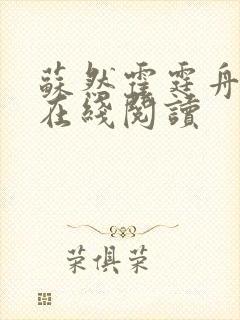 蘇然霍霆舟
在綫閱讀
荣俱荣